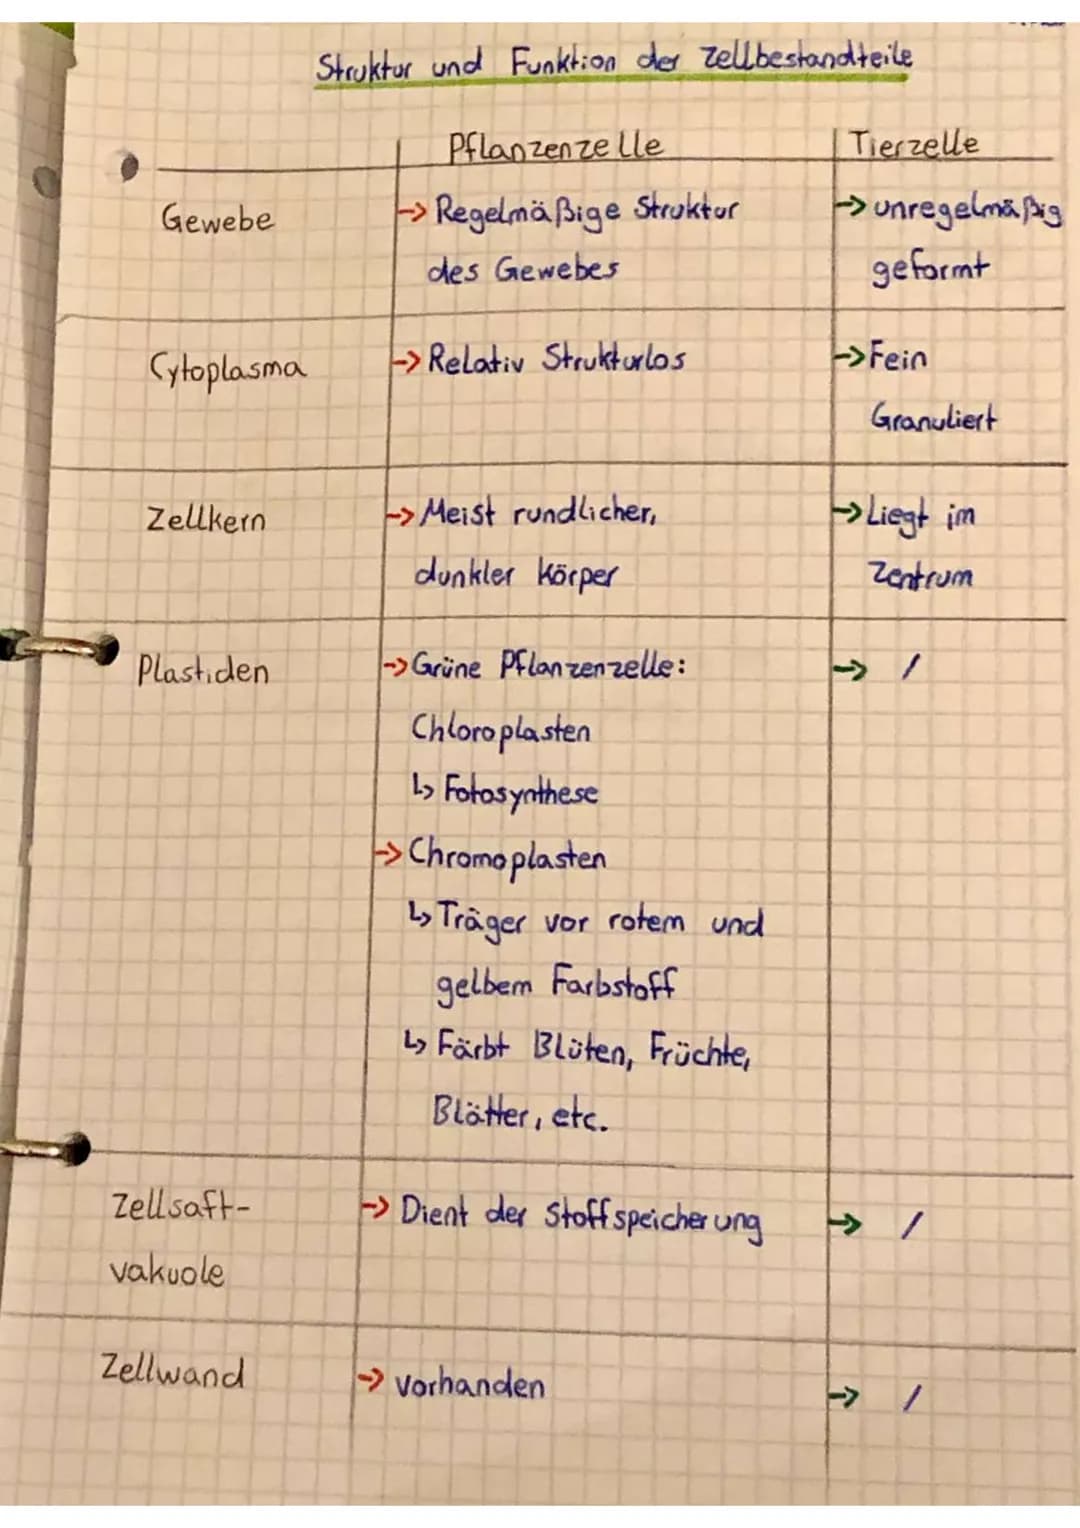 Struktur und Funktion der Zellbestandteile
Pflanzenzelle | Tierzelle
Gewebe → Regelmäßige Struktur → unregelmäßig
des Gewebes geformt
Cytoplasma → Relativ Strukturlos → Fein
Granuliert
Zellkern → Meist rundlicher, → Liegt im
dunkler Körper Zentrum
Plastiden → Grüne Pflanzenzelle: → /
Chloroplasten
↳ Fotosynthese
→ Chromoplasten
↳ Träger vor rotem und
gelbem Farbstoff
↳ Färbt Blüten, Früchte,
Blätter, etc.
Zellsaft- → Dient der Stoffspeicherung → /
vakuole
Zellwand → vorhanden → /